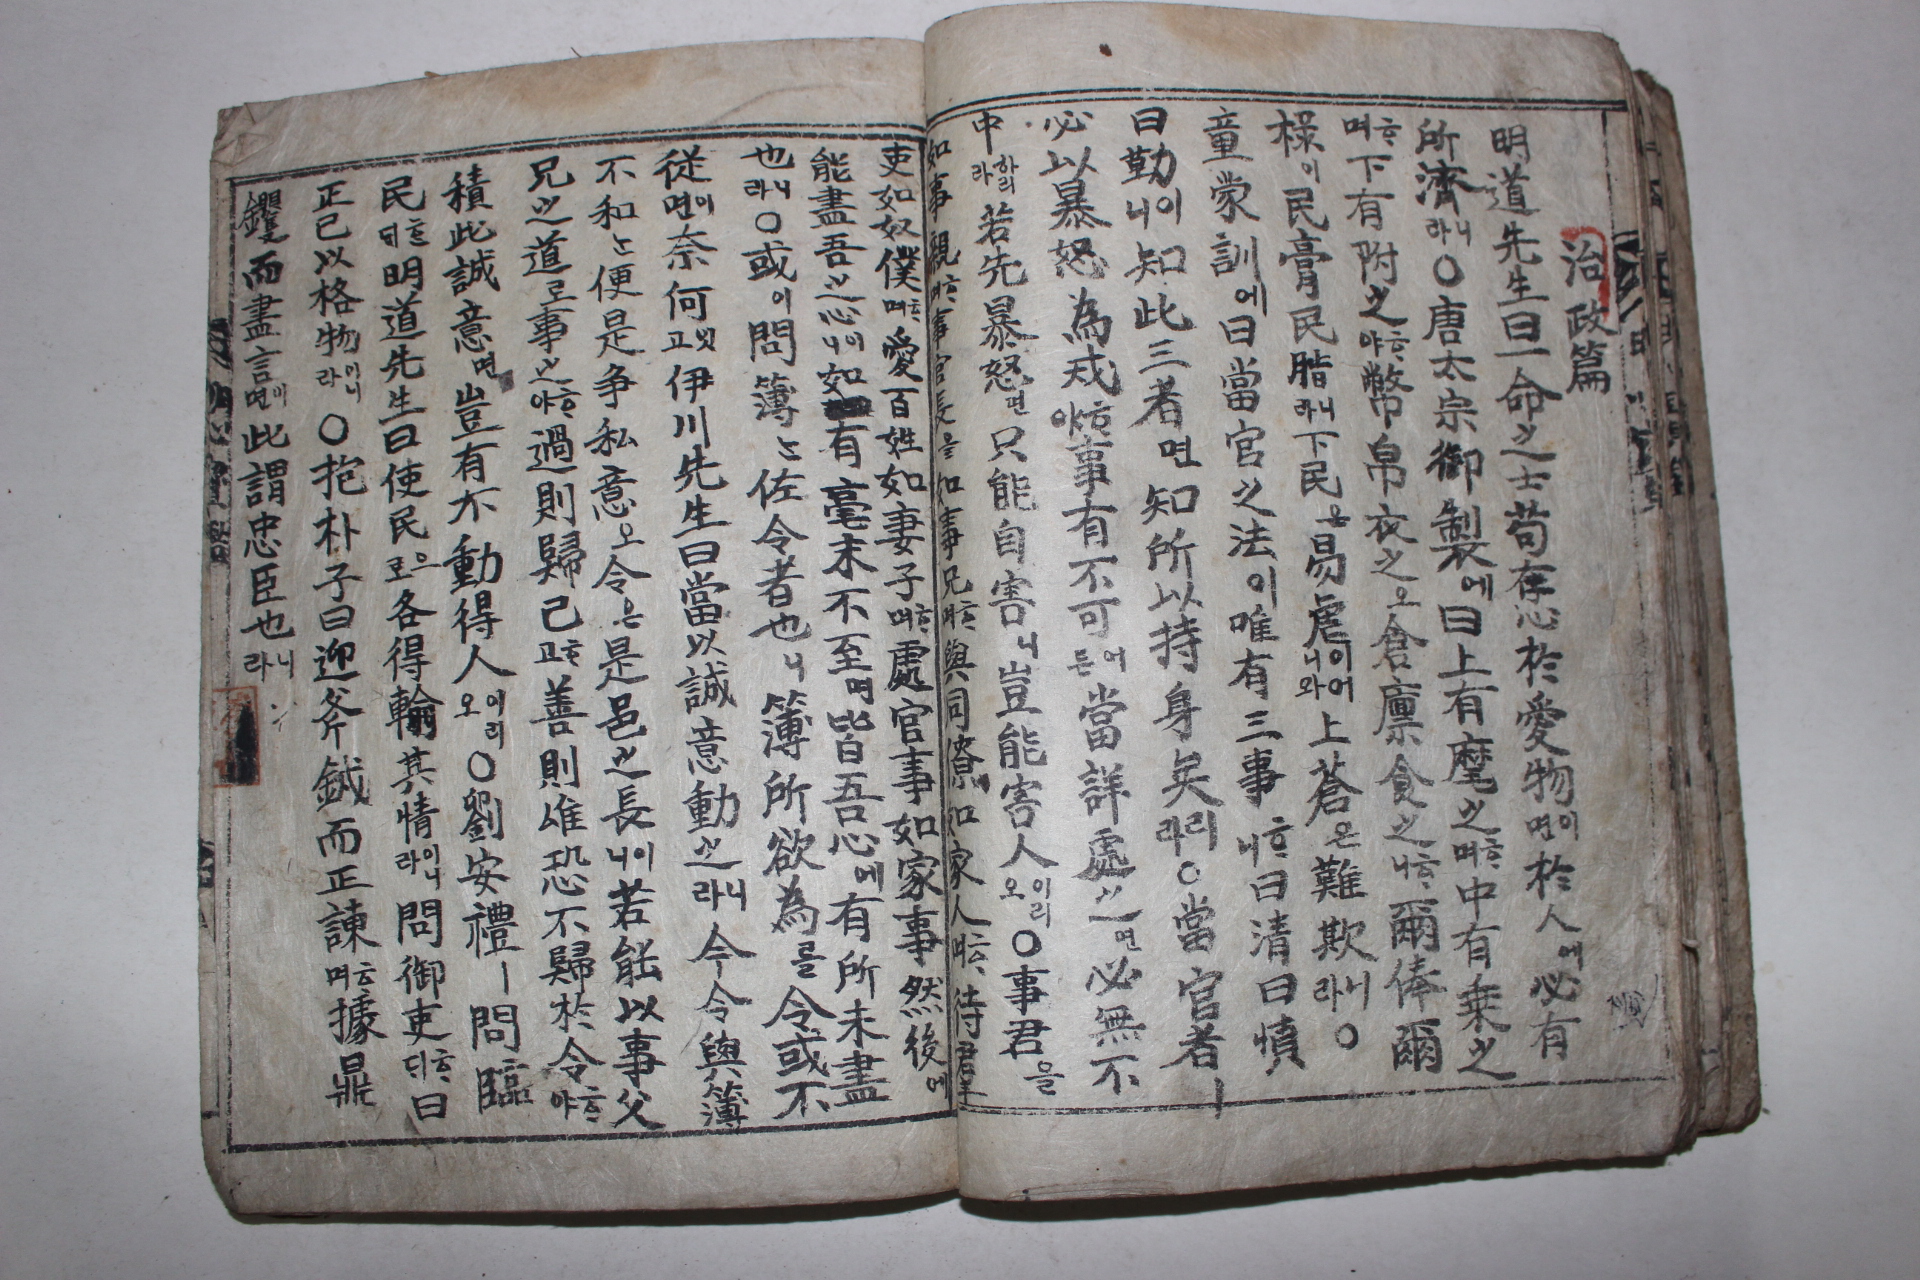 治政篇
明道先生曰一命之士苟存心於愛物이면於人에必有
所濟니라○唐太宗御製에曰上有麾之며中有乗之
며下有附之야幣帛衣之오倉廪食之니爾俸爾
禄이民膏民脂니라下民은易虐이어니와上蒼은難欺니라○
童蒙訓에曰當官之法이唯有三事니曰清曰慎
曰勤이니知此三者면知所以持身矣리라○當官者ㅣ
必以暴怒為戒야事有不可어든當詳處之면必無不
中하리라若先暴怒면只能自害니豈能害人이리오○事君을
如事親며事官長을如事兄며與同僚如家人며待羣
吏如奴僕며愛百姓如妻子며處官事如家事然後에
能盡吾之心이니如有毫末不至며皆吾心에有所未盡
也니라○或이問簿佐令者也니簿所欲為를令或不
從이면奈何잇고伊川先生曰當以誠意動之니라今令與簿
不和便是争私意오令은是邑之長이니若能以事父
兄之道로事之야過則歸己고善則唯恐不歸於令야
積此誠意면豈有不動得人이리오○劉安禮ㅣ問臨
民明道先生曰使民으로各得輸其情이니라問御吏曰
正己以格物이니라○抱朴子曰迎斧鉞而正諫며據鼎
鑊而盡言이면此謂忠臣也니라